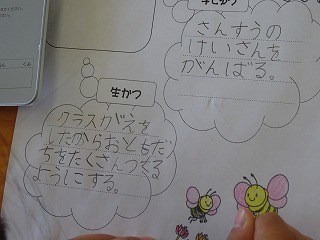 さんすうの
けいさんを
がんばる。
生かつ
クラスがえを
したからおともだ
ちをたくさんつくる
ようにする。